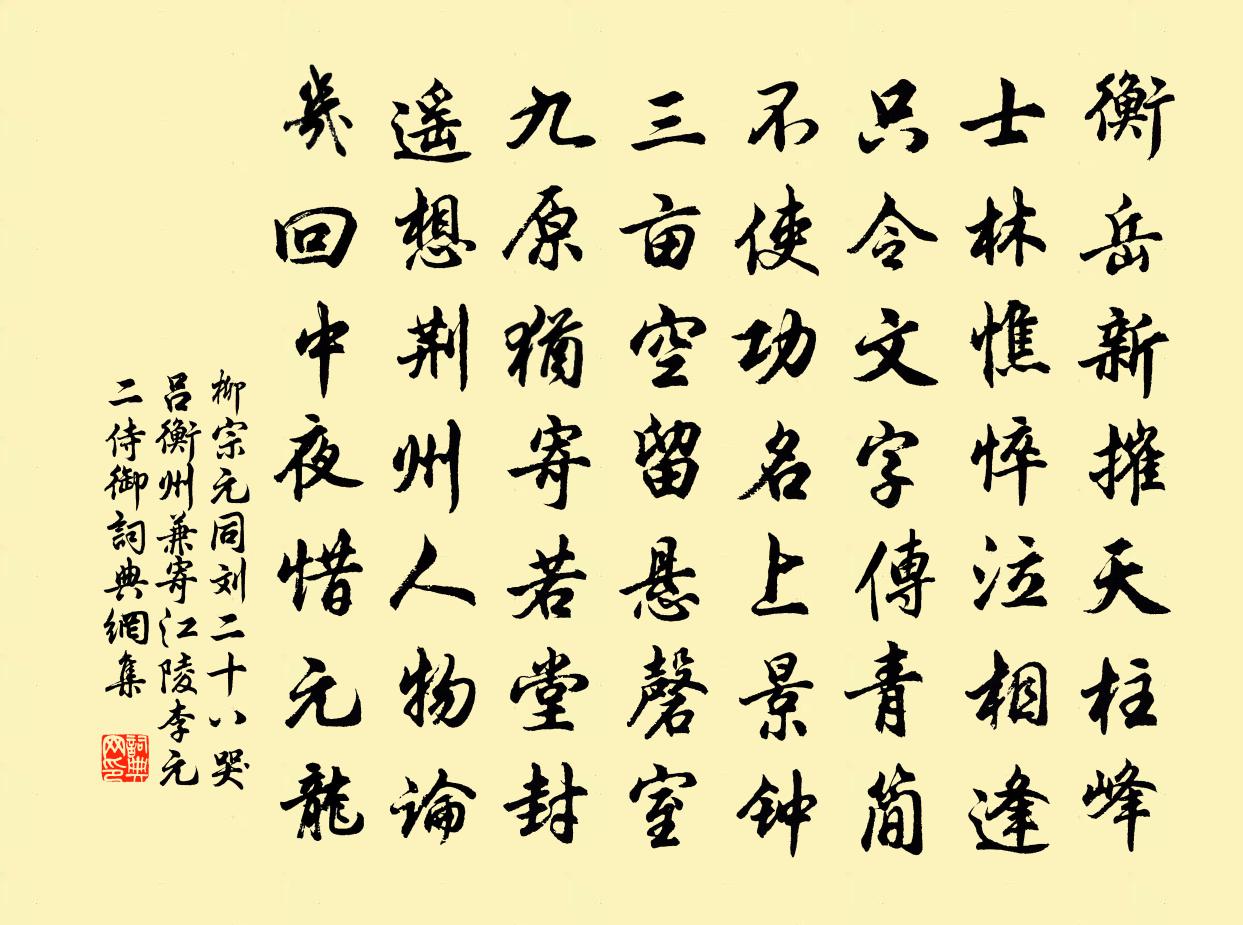 衡岳新摧天柱峰
士林憔悴泣相逢
只令文字傳青简
不使功名上景钟
三亩空留悬磬室
九原猶寄若堂封
遥想荆州人物論
幾回中夜惜元龍
柳宗元同刘二十八哭
吕衡州兼寄江陵李元
二侍御詞典網集
詞典网印